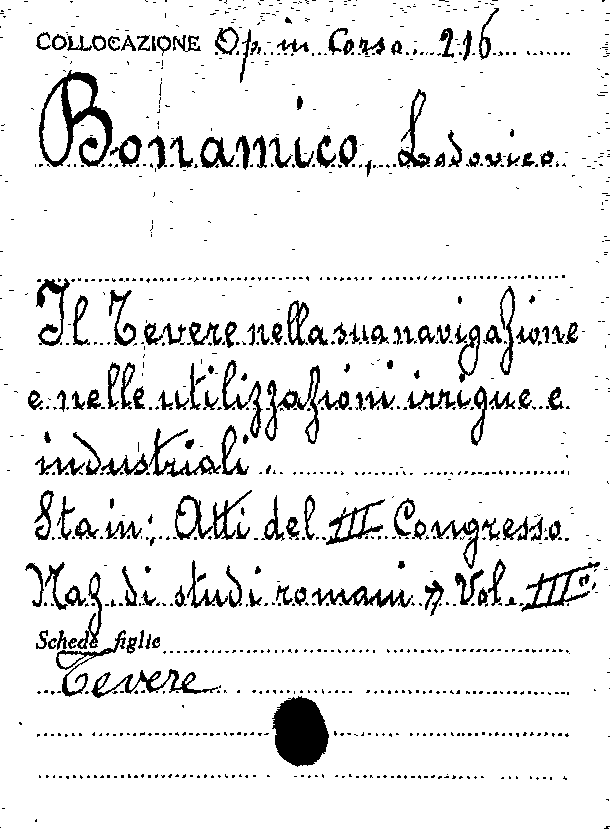 COLLOCAZIONE Op. in Corso. 216
Bonamico, Lodovico
Il Tevere nella sua navigazione
e nelle utilizzazioni irrigue e
industriali.
Sta in: Atti del III Congresso
Naz. di studi romani » Vol. III°
Schede figlie
Tevere